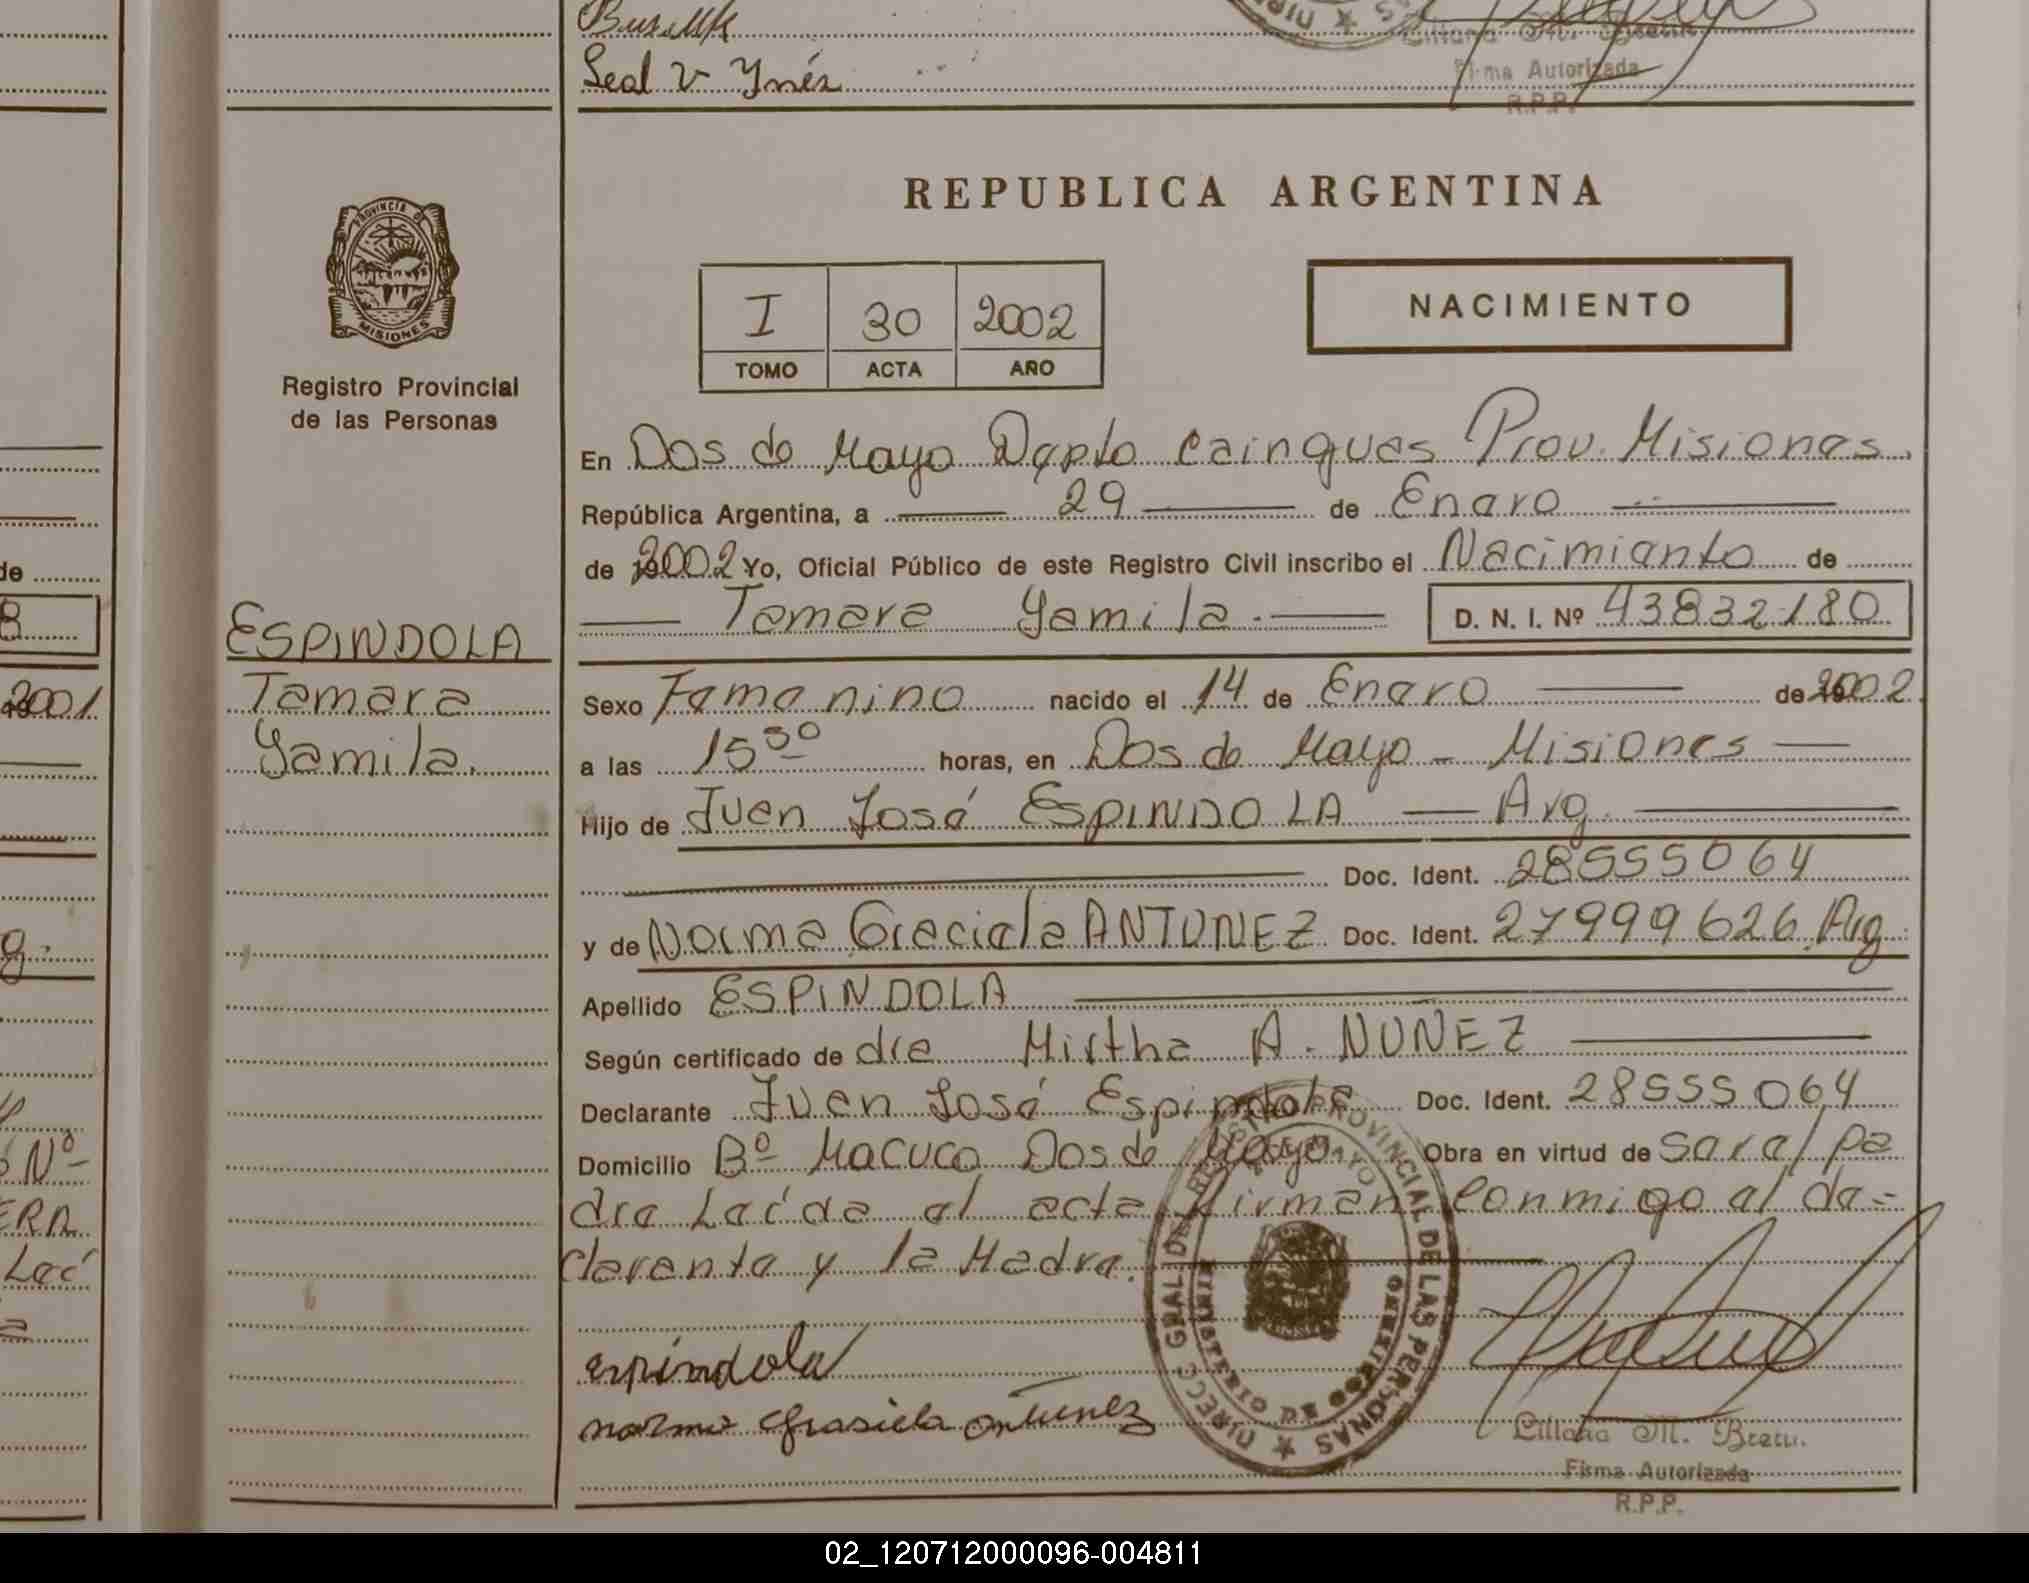 Seal v Ynés
Firma Autorizada
R.P.P.
REPUBLICA ARGENTINA
PROVINCIA DE
MISIONES
Registro Provincial
de las Personas
I 30 2002
TOMO ACTA AÑO
NACIMIENTO
En Dos de Mayo Depto Cainguas Prov. Misiones
República Argentina, a 29 de Enero
de 2002 Yo, Oficial Público de este Registro Civil inscribo el Nacimiento de
Tamara Yamila. D. N. I. Nº 43832180
ESPINDOLA
Tamara
Yamila.
Sexo Femenino nacido el 14 de Enero de 2002
a las 15 30 horas, en Dos de Mayo - Misiones
Hijo de Juan José ESPINDOLA Arg.
Doc. Ident. 28555064
y de Norma Graciela ANTUNEZ Doc. Ident. 27999626 Arg
Apellido ESPINDOLA
Según certificado de dra Mirtha A. NUNEZ
Declarante Juan José Espindola Doc. Ident. 28555064
Domicilio Bº Macuco Dos de Mayo. Obra en virtud de ser el pa
dre Leída el acta firman conmigo el de=
clarante y la Madre.
espindola
norma Grasiela antunez
DIRECC GRAL DEL REGISTRO PROVINCIAL DE LAS PERSONAS
MINISTERIO DE GOBIERNO
Liliana M.
Firma Autorizada
R.P.P.
2001
Nº
ERA
Leí
02_120712000096-004811